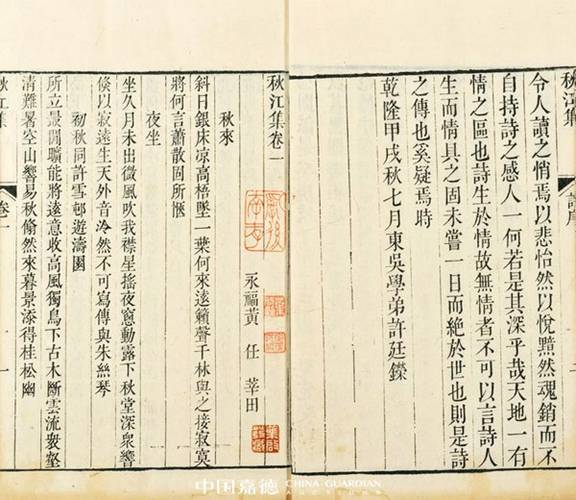 秋江集
令人讀之悄焉以悲怡然以悅黯然魂銷而不
自持詩之感人一何若是其深乎哉天地一有
情之區也詩生於情故無情者不可以言詩人
生而情具之固未嘗一日而絕於世也則是詩
之傳也奚疑焉時
乾隆甲戌秋七月東吳學弟許廷鑅
秋江集卷一
永福黃 任 莘田
秋來
斜日銀床凉高梧墜一葉何來逺籟聲千林與之接寂寞
將何言蕭散固所愜
夜坐
坐久月未出微風吹我襟星摇夜窻動露下秋堂深衆響
倐以寂逺生天外音泠然不可寫傳與朱絲琴
初秋同許雪邨遊濤園
所立景閒曠能將逺意收高風獨鳥下古木斷雲流衆壑
清難暑空山響易秋翛然來暮景添得桂松幽
秋江集
卷一
一
中国嘉德 CHINA GUARDIAN AUCTIONS